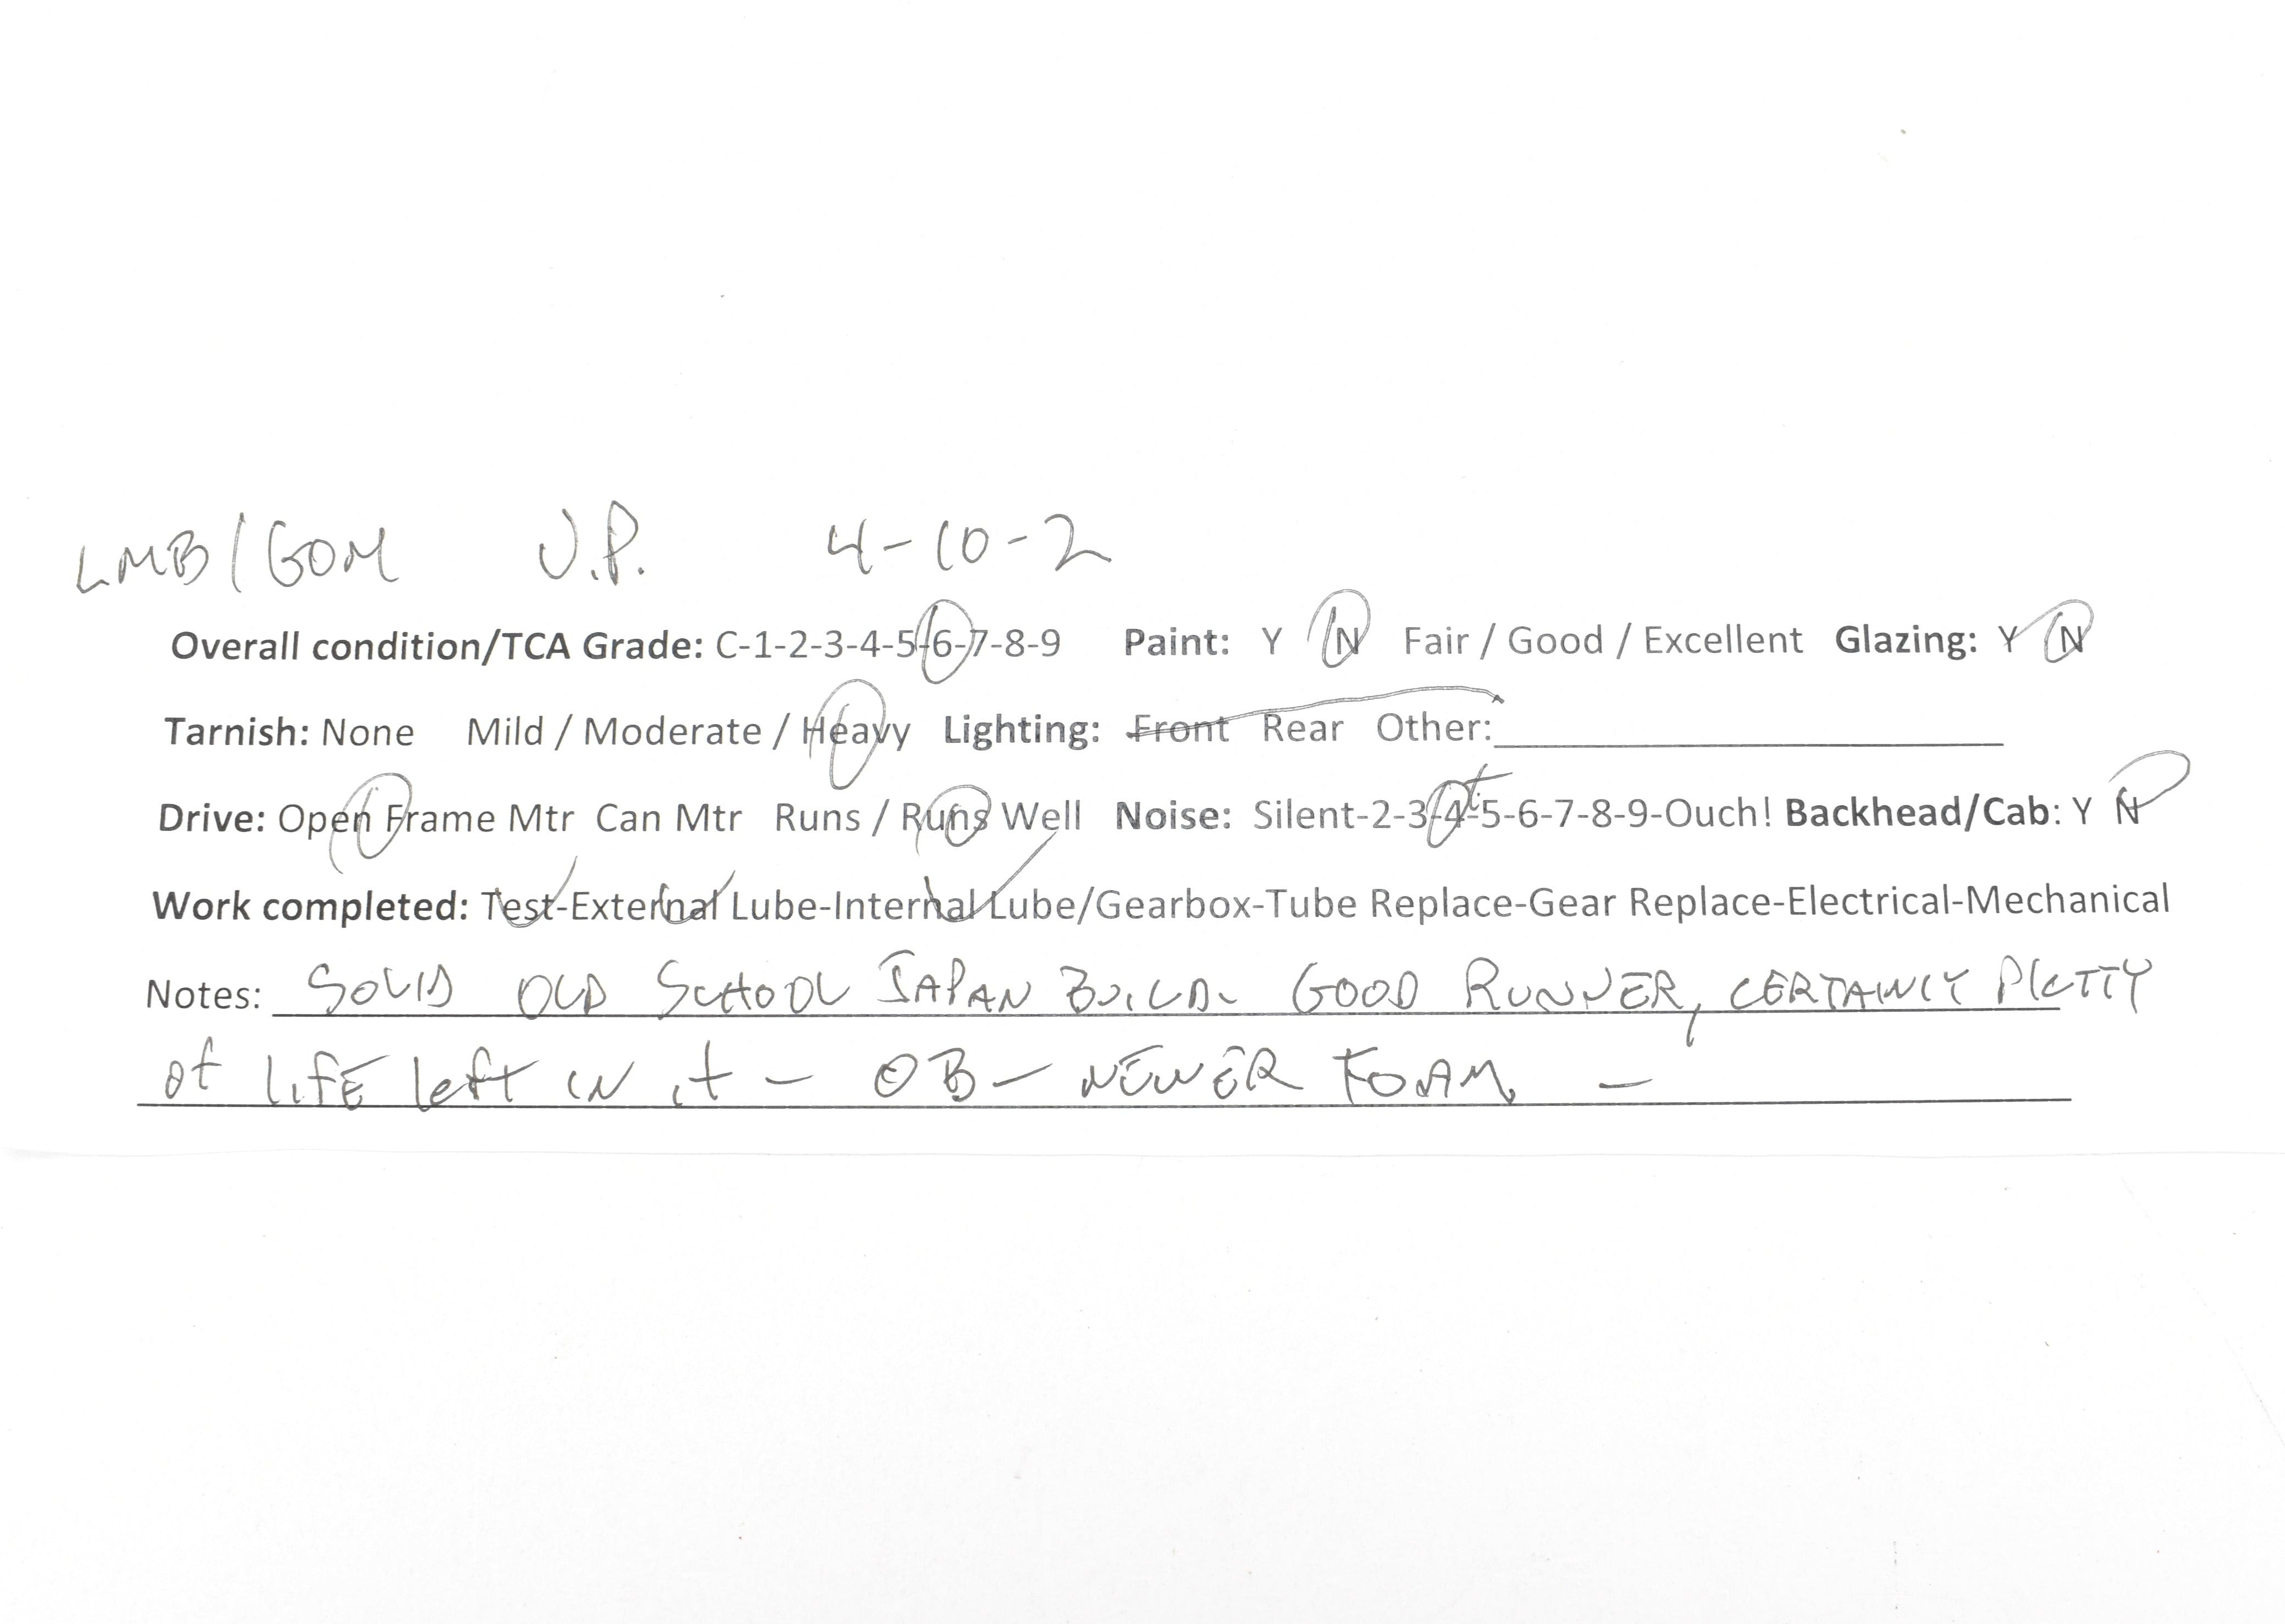 LMB/GOM U.P. 4-10-2
Overall condition/TCA Grade: C-1-2-3-4-5-6-7-8-9 Paint: Y N Fair / Good / Excellent Glazing: Y N
Tarnish: None Mild / Moderate / Heavy Lighting: Front Rear Other:
Drive: Open Frame Mtr Can Mtr Runs / Runs Well Noise: Silent-2-3-4-5-6-7-8-9-Ouch! Backhead/Cab: Y N
Work completed: Test-External Lube-Internal Lube/Gearbox-Tube Replace-Gear Replace-Electrical-Mechanical
Notes: SOLID OLD SCHOOL JAPAN BUILD. GOOD RUNNER, CERTAINLY
of LIFE left IN it - OB - NEWER FOAM -